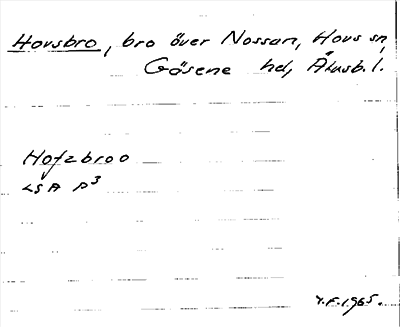 Hovsbro, bro över Nossan, Hovs sn,
Gäsene hd, Älvsb. l.
Hofzbroo
LSA p3
Y.F. 1965.